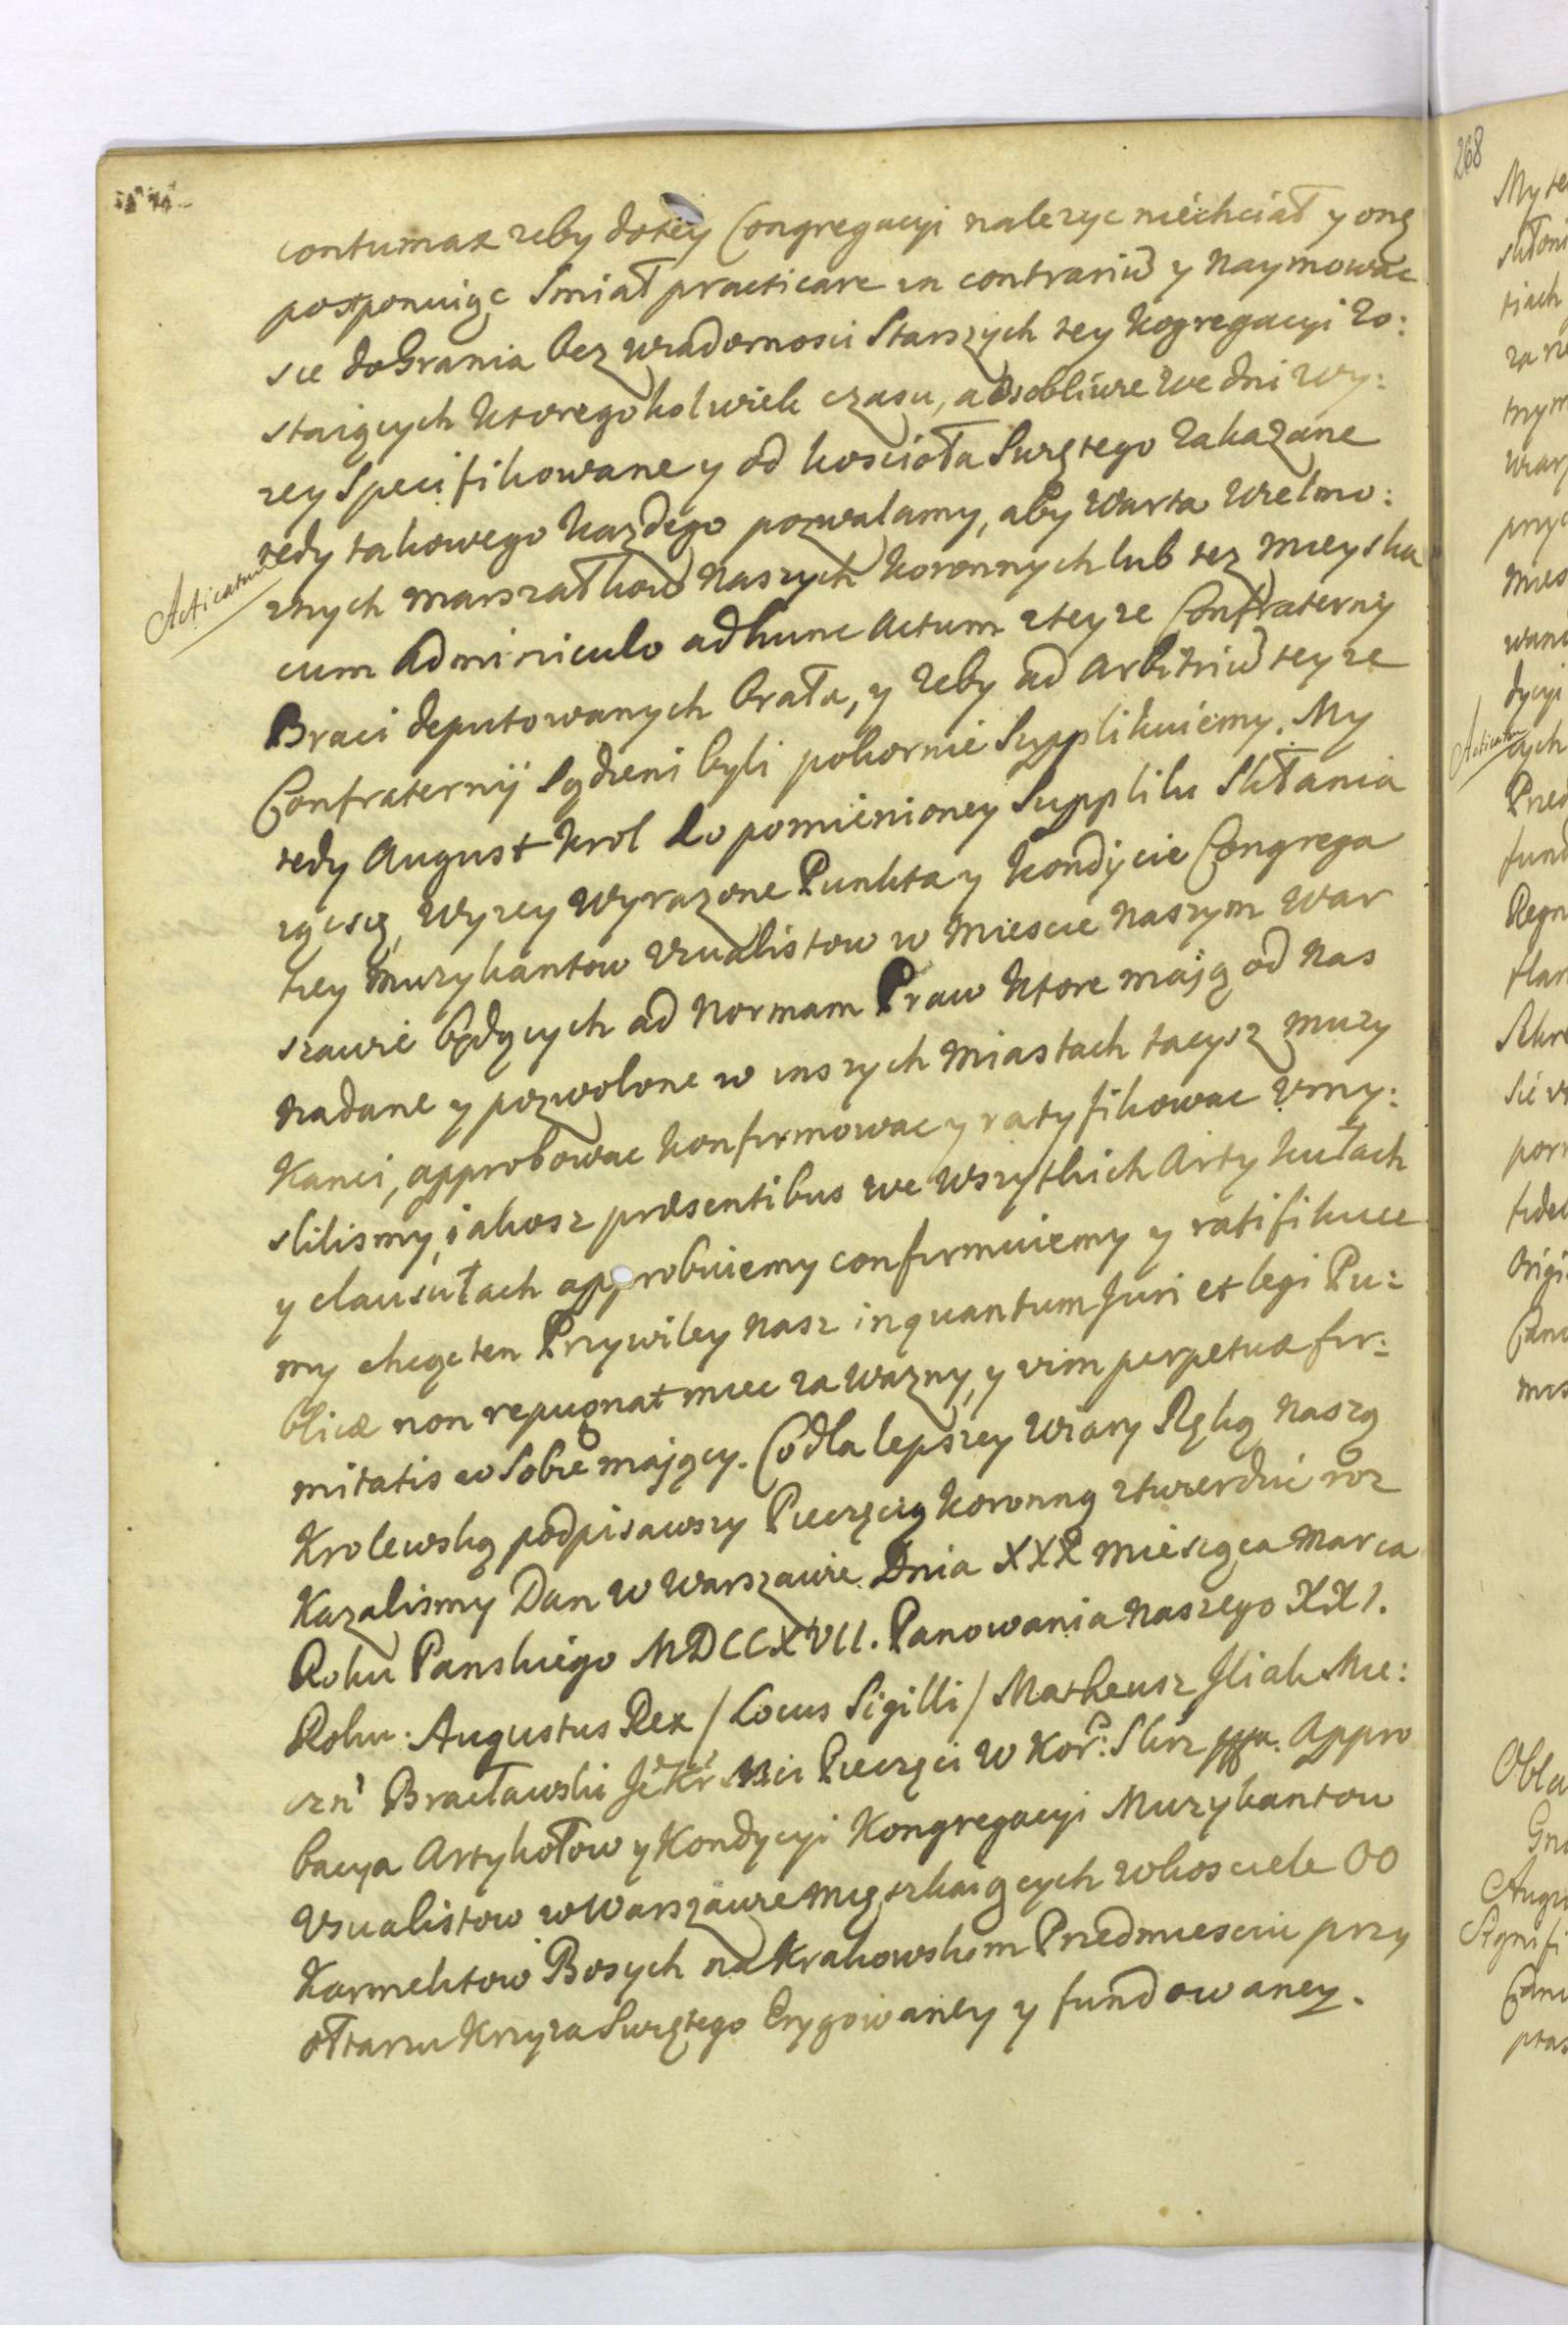 contumax zeby dotey Congregacyi nalezyc niechciał y onę
postponuiąc Smiał practicare in contrariũ y Naymowac
sie doGrania bez wiadomosci Starszych tey Kogregacyi Zo:
staiących Ktoregokolwiek czasu, aosobliwie We dni Wy:
zey Specifikowane y od koscioła Swiętego Zakazane
tedy takowego kazdego pozwalamy, aby Warta Wielmo:
Acticatum
znych marszałkow Naszych Koronnych lub tez mieyska
cum Adminiculo adhunc Actum zteyze Confraternij
Braci deputowanych brała, y Zeby ad arbitriũ teyze
Confraternij Sądzeni byli pokornie Supplikuiemy. My
tedy August Krol do pomienioney Suppliki Skłania
iąc się, Wyzey Wyrazone Punkta y Kondycie Congrega
tiey Muzykantow Vzualistow w Miescie Naszym War
szawie będących ad Normam Praw Ktore mają od Nas
Nadane y pozwolone w inszych Miastach tacysz muzy
Kanci, approbowac Konfirmowac y ratyfikowac Vmy:
slilismy, iakosz præsentibus we Wszytkich Artykułach
y clausułach approbuiemy confirmuiemy y ratifikuie
my chcąc ten Przywiley Nasz inquantum Juri et legi Pu:
blicæ non repugnat miec za Wazny, y vim perpetuæ fir:
mitatis w Sobie mający. Co dla lepszey Wiary Ręką Naszą
Krolewską podpisawszy Pieczęcią Koronną ztwierdzić
Kazalismy Dan w Warszawie Dnia XXX Miesiąca Marca
Roku Panskiego MDCCXVII. Panowania Naszego XXI.
Roku. Augustus Rex / Locus Sigilli / Matheusz Mie:
czñ Bracławski Je Kr Mci Pieczęci W Kor: Appro
bacya Artykołow y Kondycyi Kongregacyi Muzykantow
Vsualistow w Warszawie Mięszkaiących w kosciele OO
Karmelitow Bosych na Krakowskim Przedmiesciu przy
ołtarzu Krzyza Swiętego Erygowaney y fundowaney.
268